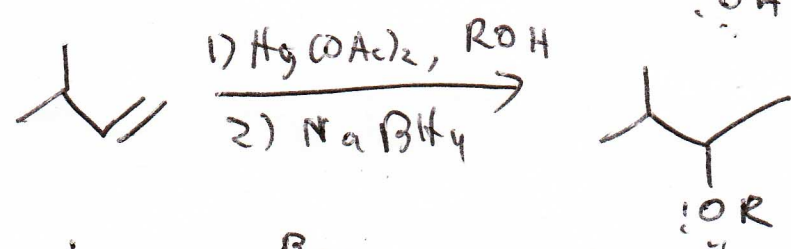 :OH
1) Hg(OAc)₂, ROH
2) NaBH₄
:OR
B